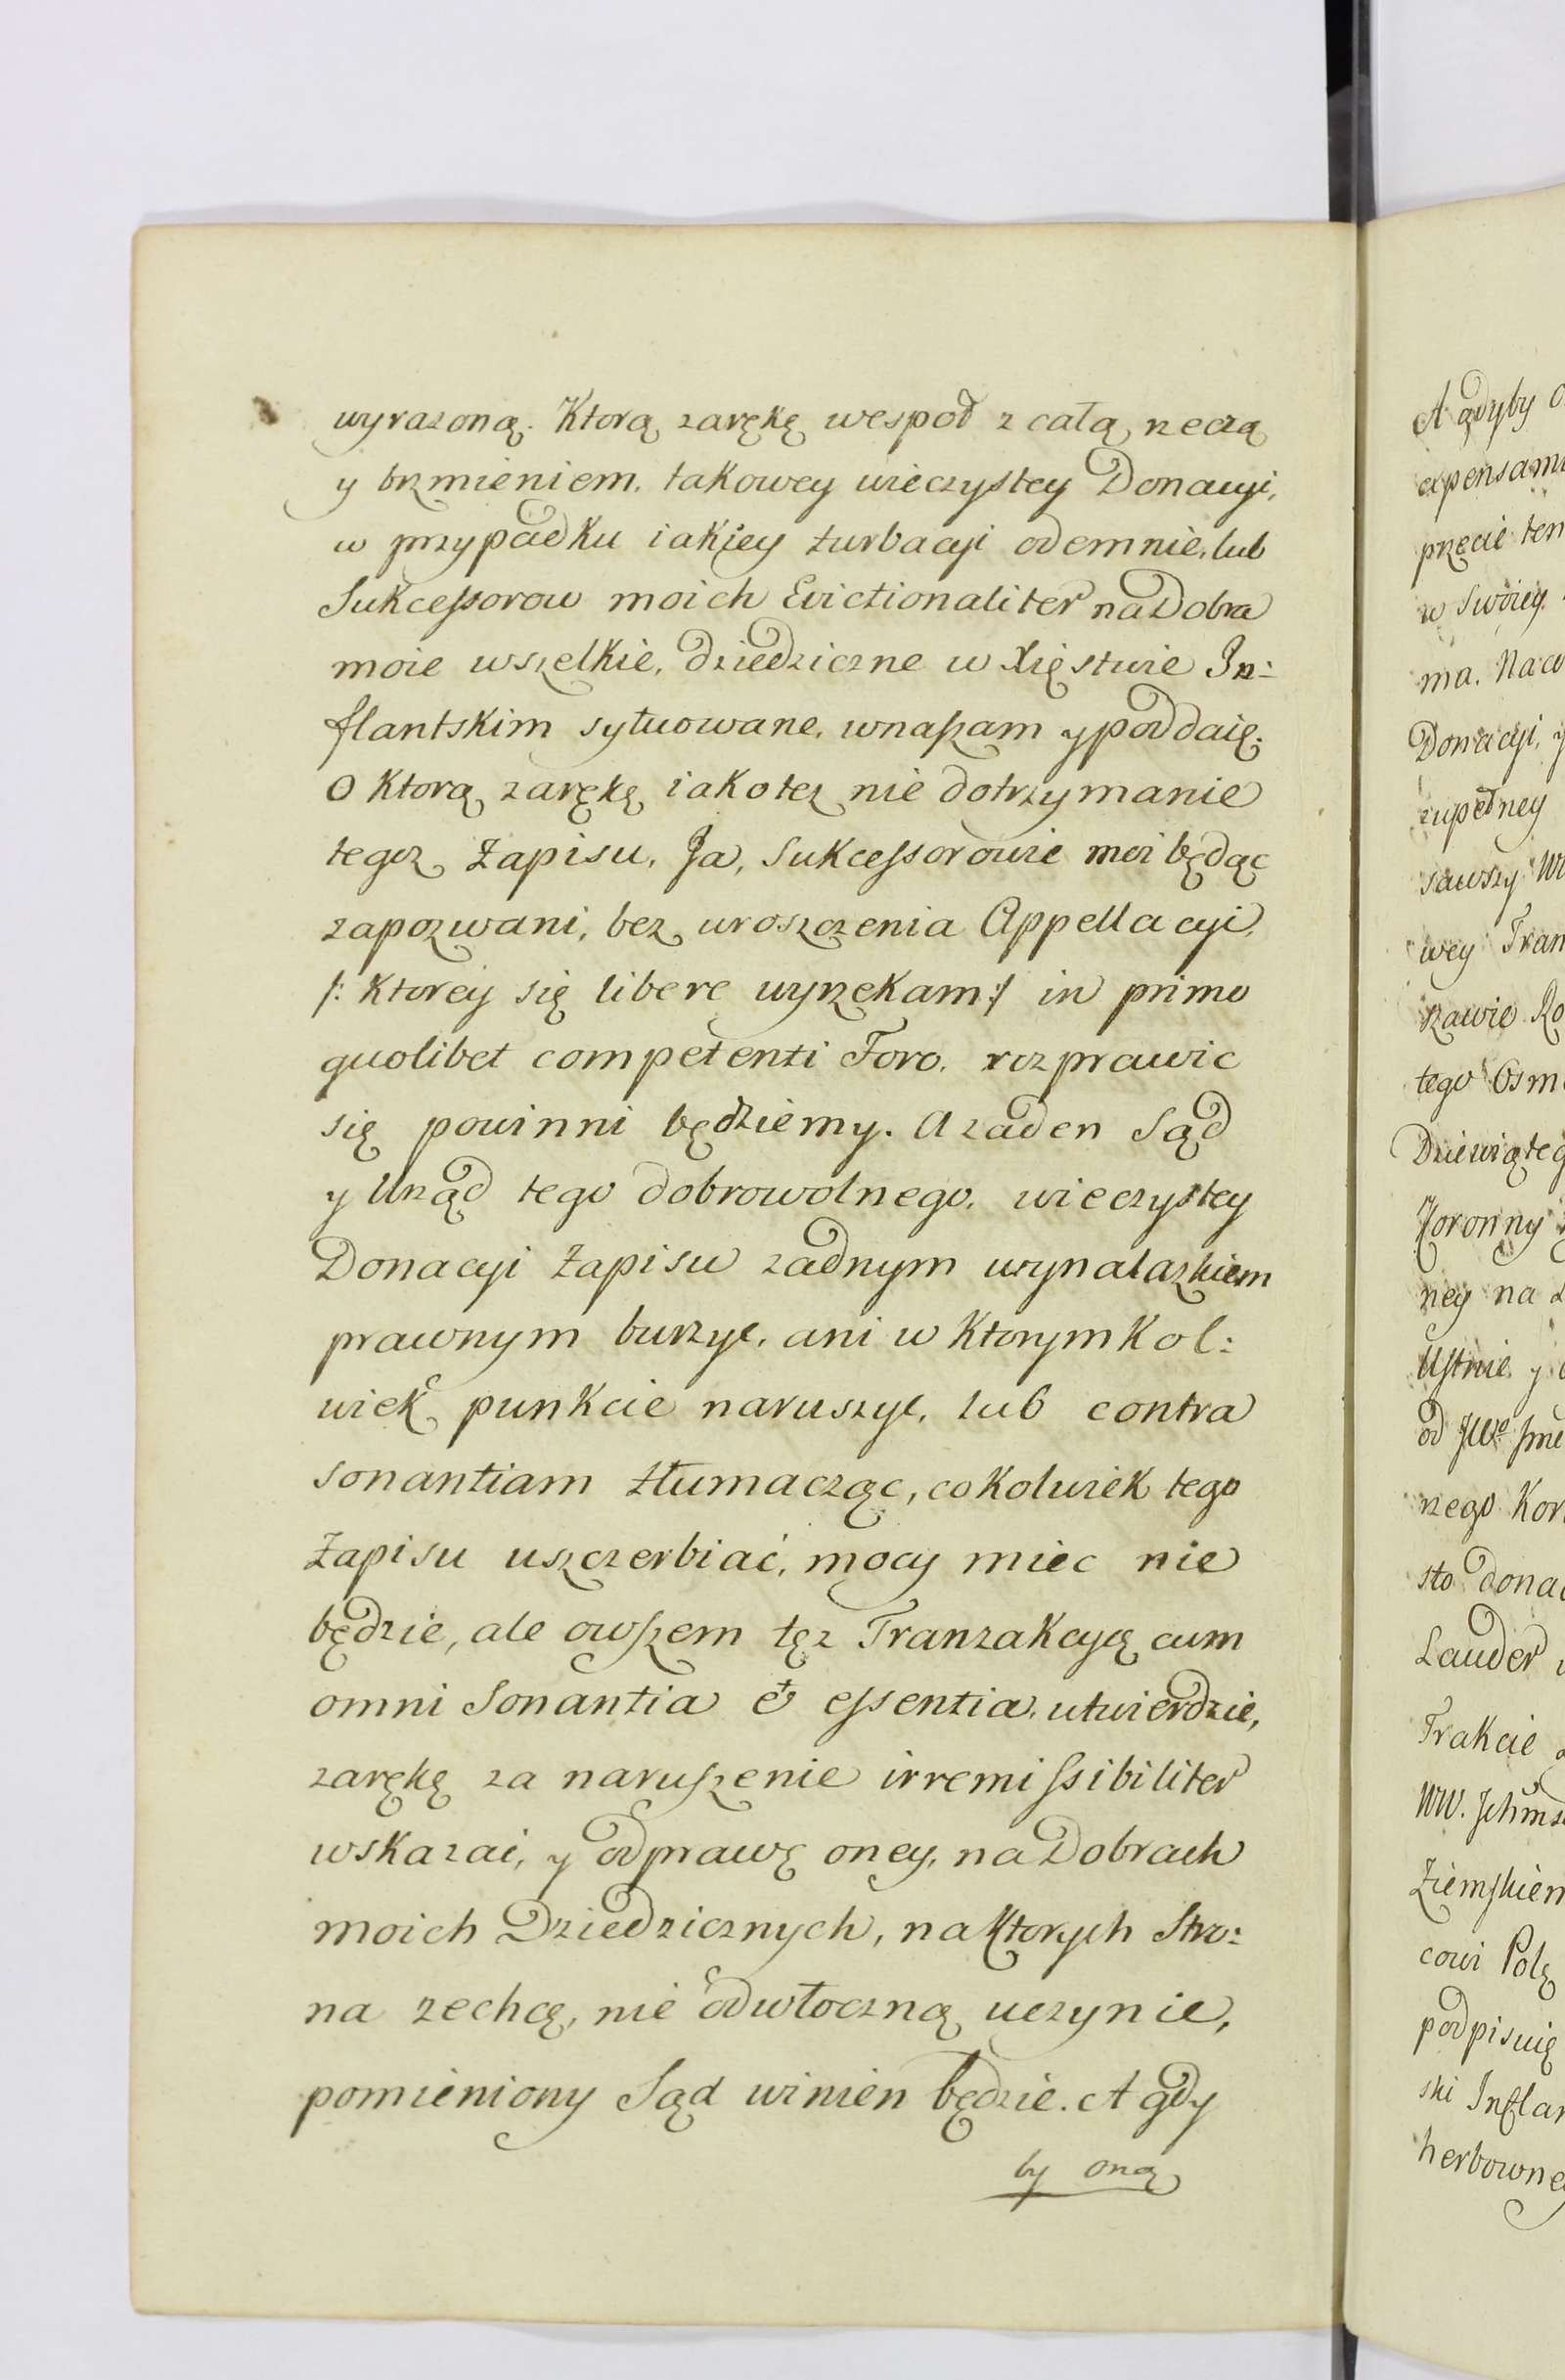 wyrazoną. Ktorą zarękę wespoł z całą rzeczą
y brzmieniem, takowey wieczystey Donacyi,
w przypadku iakiey turbacyi odemnie, lub
Sukcessorow moich Evictionaliter na Dobra
moie wszelkie, dziedziczne w Xięstwie In:
flantskim sytuowane, wnaszam y poddaię.
O ktorą zarękę iako też nie dotrzymanie
tegoz Zapisu, Ja, Sukcessorowie moi będąc
zapozwani, bez uroszczenia Appellacyi,
/: Ktorey się libere wyrzekam :/ in primo
quolibet competenti Foro, rozprawic
się powinni będziemy. A zaden Sąd
y Urząd tego dobrowolnego, wieczystey
Donacyi Zapisu zadnym wynalazkiem
prawnym burzyc, ani w Ktorymkol:
wiek punkcie naruszyc, lub contra
sonantiam tłumacząc, cokolwiek tego
Zapisu uszczerbiać, mocy miec nie
będzie, ale owszem tęz Tranzakcyą cum
omni Sonantia et essentia, utwierdzic,
zarękę za naruszenie irremissibiliter
wskazac, y odprawę oney, na Dobrach
moich Dziedzicznych, na Ktorych Stro:
na zechcą, nie odwłoczną uczynic,
pomieniony Sąd winien będzie. A gdy
by oną
A gdyby
expensami
przecie ten
w Swoiey
ma. Na
Donacyi, y
zupełney
sawszy
wey Tran
rzawie Ro
tego Osm
Dziewiąteg
Koronny
ney na
Ustnie y
od
nego Kor
sto dona
Lauder
Trakcie
WW.
Ziemskiem
cowi Polę
podpisuię
ski Inflan
herbowne